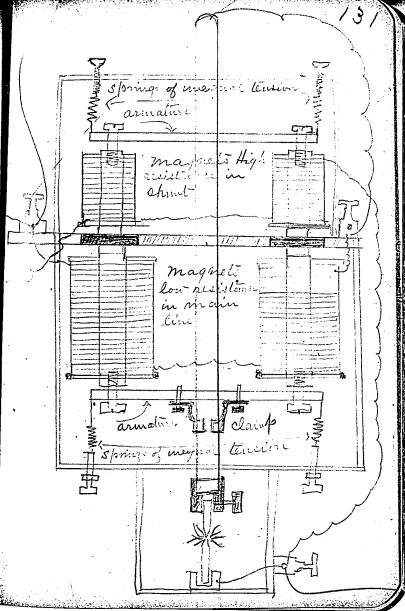 131
springs of unequal tension
armature
Magnets High
resistance in
shunt
Magnets
low resistance
in main
line
armature clamp
springs of unequal tension